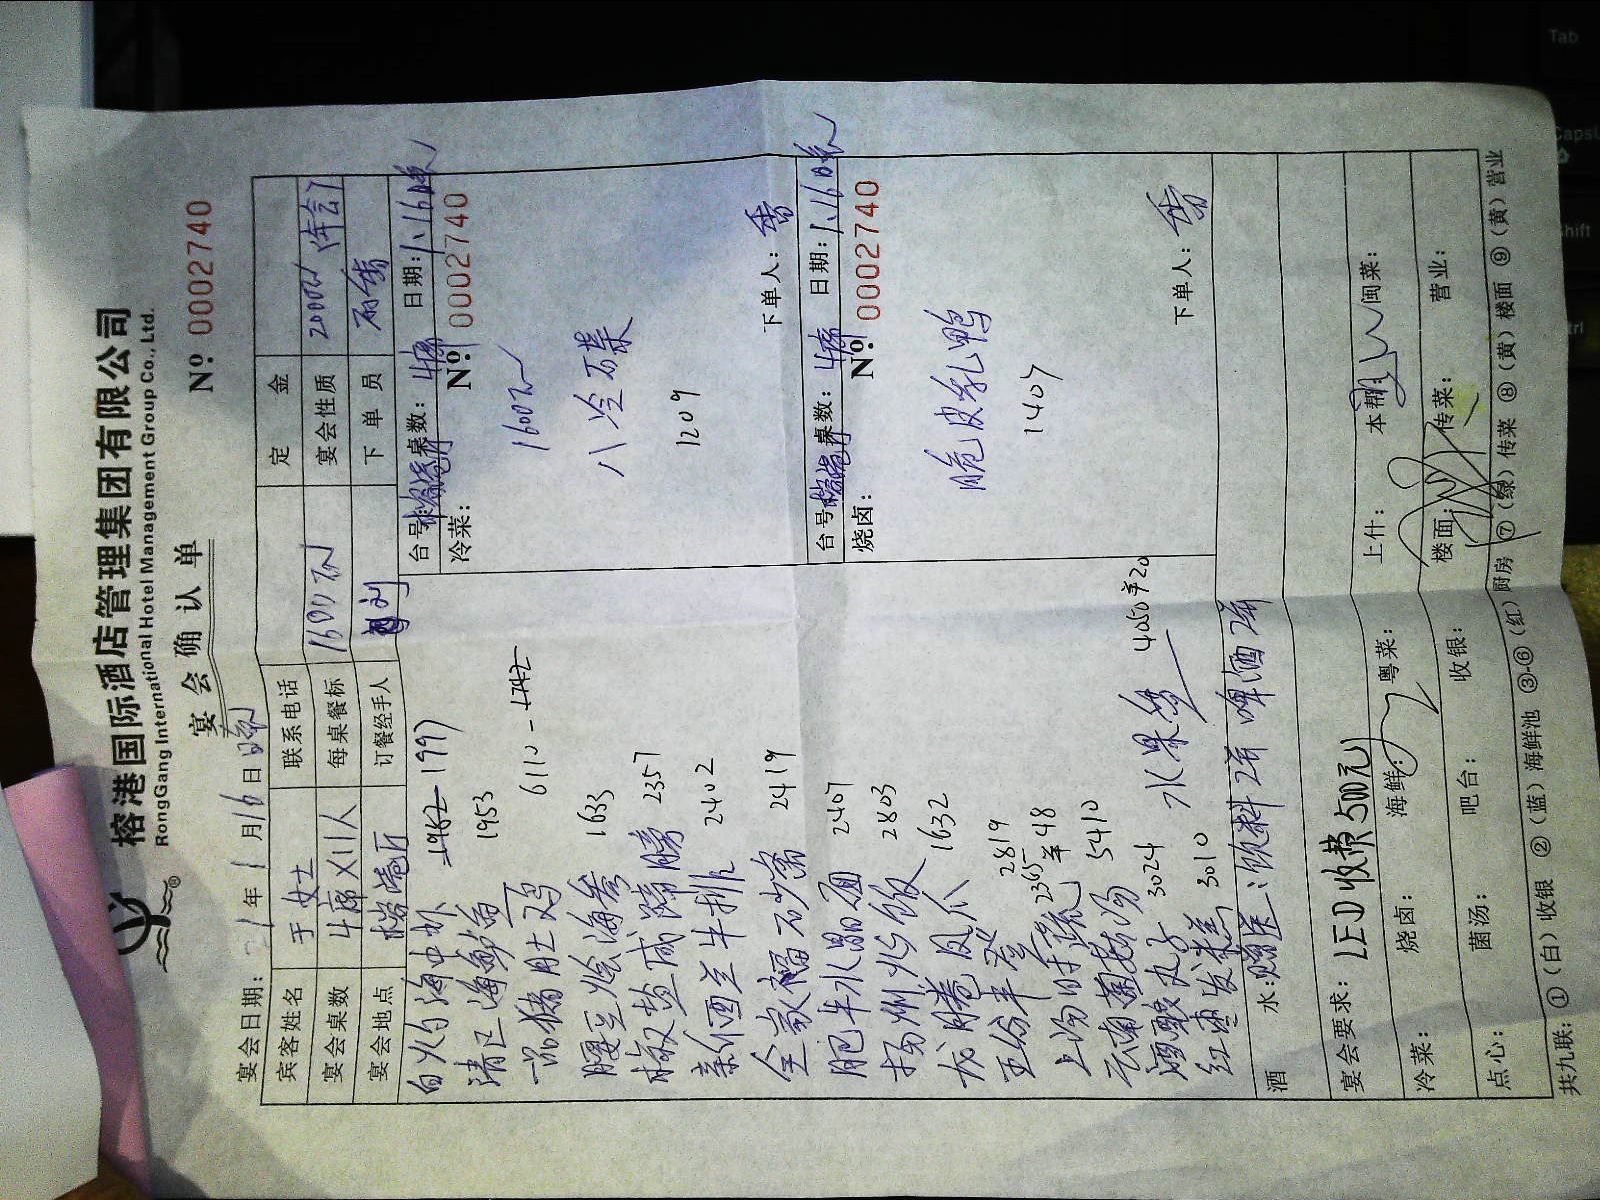 榕港国际酒店管理集团有限公司
RongGang International Hotel Management Group Co., Ltd.
®
宴会确认单
Nº 0002740
宴会日期: 年1月16日晚
宾客姓名 于女士 联系电话 定金
宴会桌数 4席×11人 每桌餐标 1600元 宴会性质 2000元 (年会)
宴会地点 榕港厅 订餐经手人 刘 下单员
白灼海中虾 1962 1997
清正海鲈鱼 1953
一品猪肚鸡 6110
1633
椒盐 2357
新西兰牛排 2402
全家福石 2419
肥牛水晶 2407
扬州炒饭 2803
龙腾卷 1632
2819
上汤时蔬 2365 半48
云南菌菇汤 5410
丸子 3024
红枣发糕 3010
水果 4050 半20
台号: 榕港厅 桌数: 4席 日期: 1.16晚
冷菜: Nº 0002740
1600元
八冷菜
1209
下单人: 香
台号: 榕港厅 桌数: 4席 日期: 1.16晚
烧卤: Nº 0002740
脆皮乳鸭
1407
下单人: 香
酒水: 赠送: 饮料2 啤酒2
宴会要求: LED收费500元
冷菜: 烧卤: 海鲜: 粤菜: 上什: 本帮: 闽菜:
点心: 菌汤: 吧台: 收银: 楼面: 传菜: 营业:
共九联: ①(白)收银 ②(蓝)海鲜池 ③-⑥(红)厨房 ⑦(绿)传菜 ⑧(黄)楼面 ⑨(黄)营业
Tab
Caps
Shift